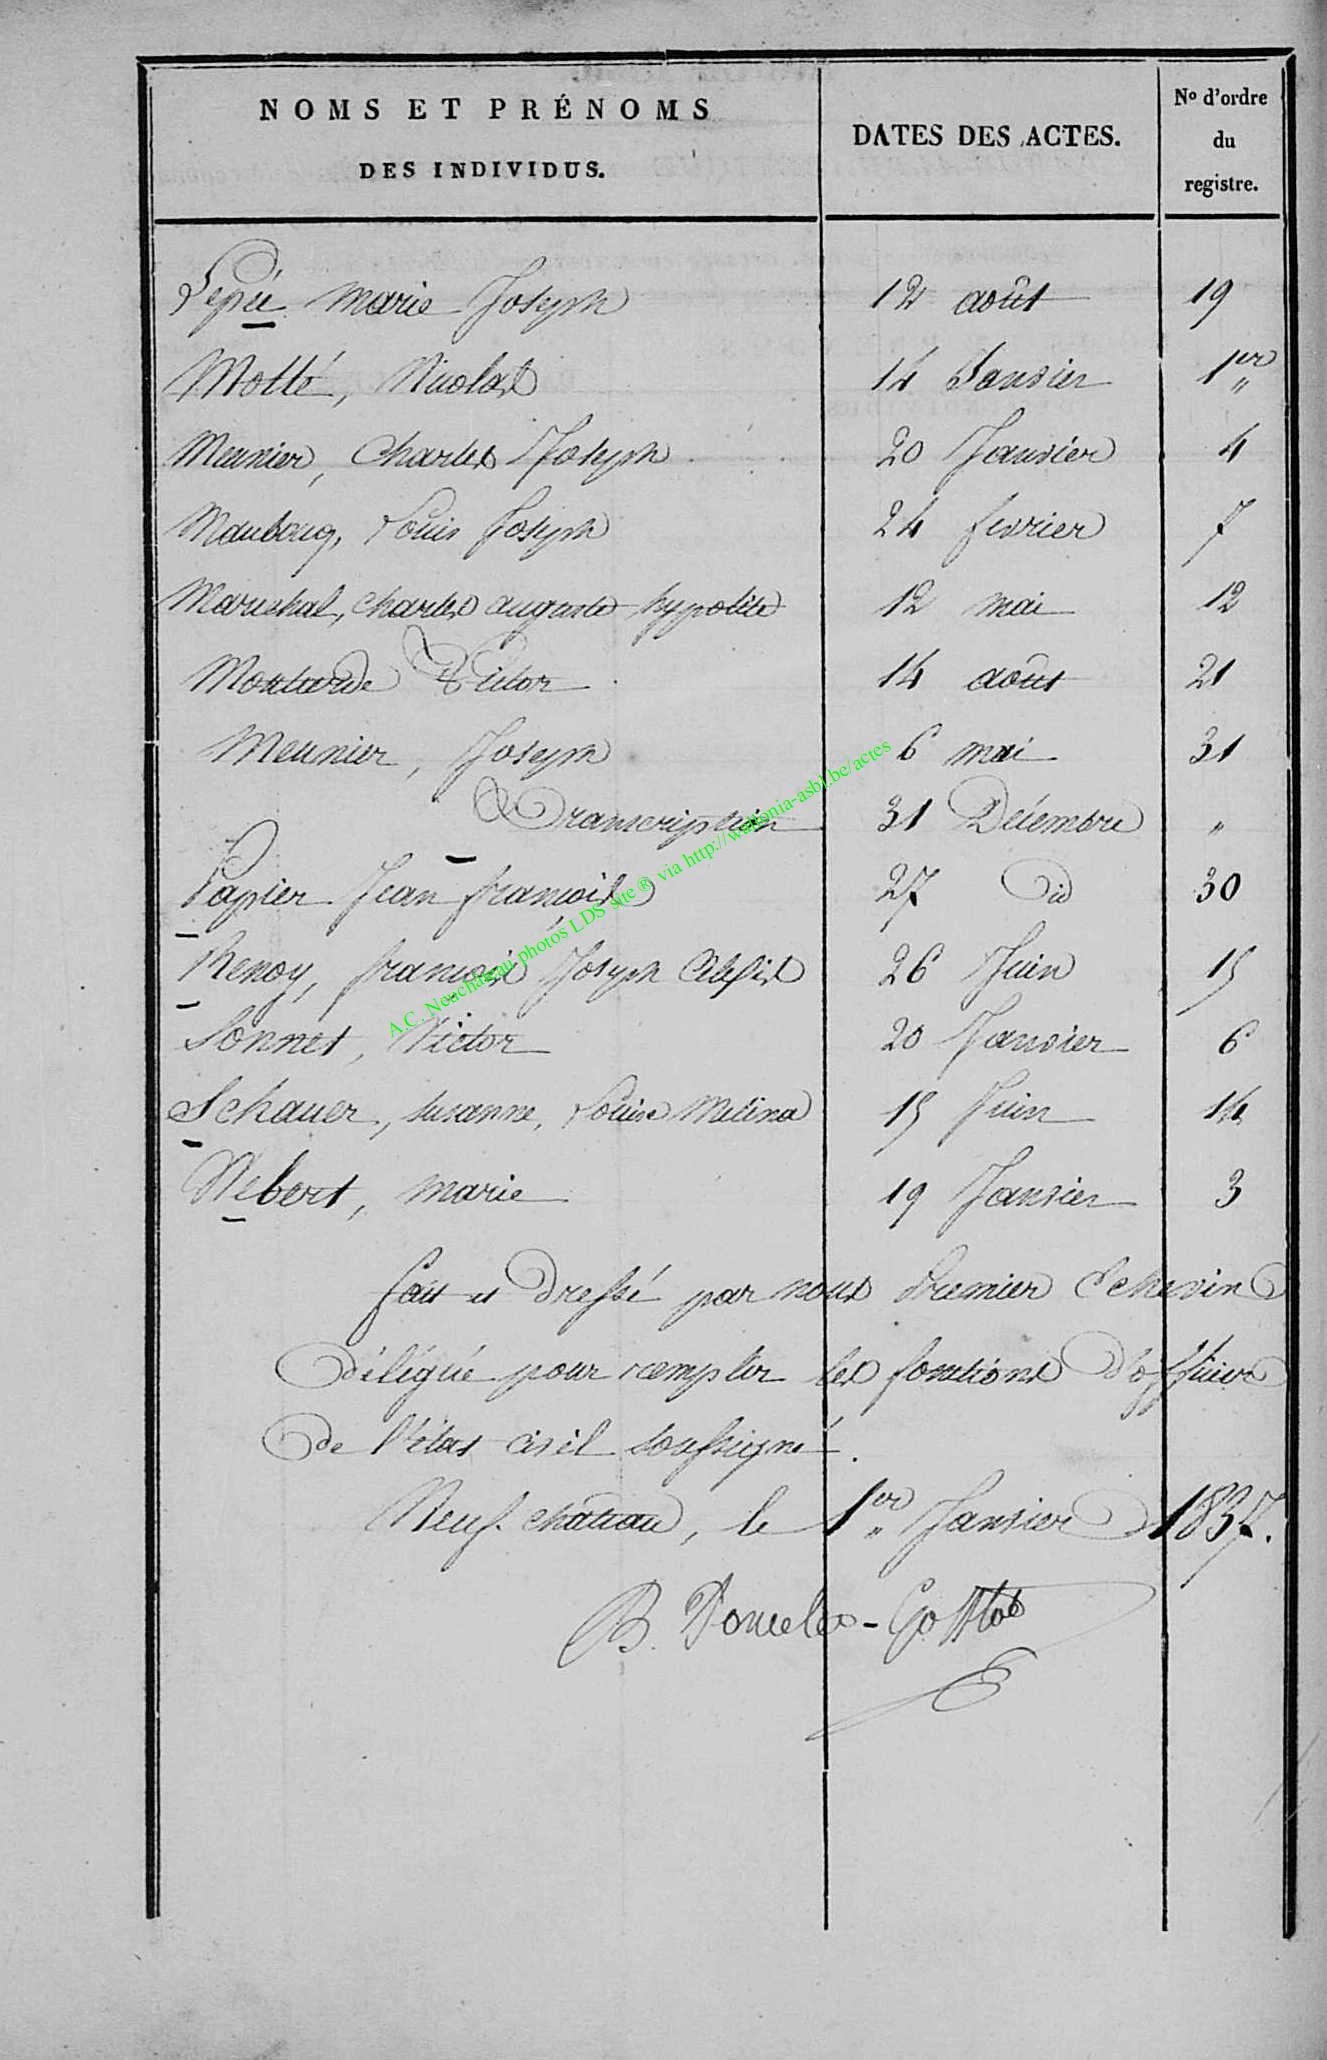 NOMS ET PRÉNOMS
DES INDIVIDUS.
DATES DES ACTES.
No d'ordre
du
registre.
Lepée Marie Joseph 12 août 19
Motté, Nicolas 14 Janvier 1er
Meunier, Charles Joseph 20 Janvier 4
Maubourg, Louis Joseph 24 fevrier 7
Marechal, Charles auguste hypolite 12 mai 12
Moutarde Victor 14 août 21
Meunier, Joseph 6 mai 31
Transcription 31 Décembre "
Papier Jean françois 27 id 30
Renoy, françois Joseph 26 Juin 15
Sonnet, Victor 20 Janvier 6
Schauer, susanne, Louise Melina 15 Juin 14
Webert, marie 19 Janvier 3
fait et Dressé par nous Premier Echevin
Délégué pour remplir les fonctions d'officier
de l'état civil soussigné.
Neufchateau, le 1er Janvier 1837.
A.C. Neuchâteau photos LDS site ® via http://wallonia-asbl.be/actes